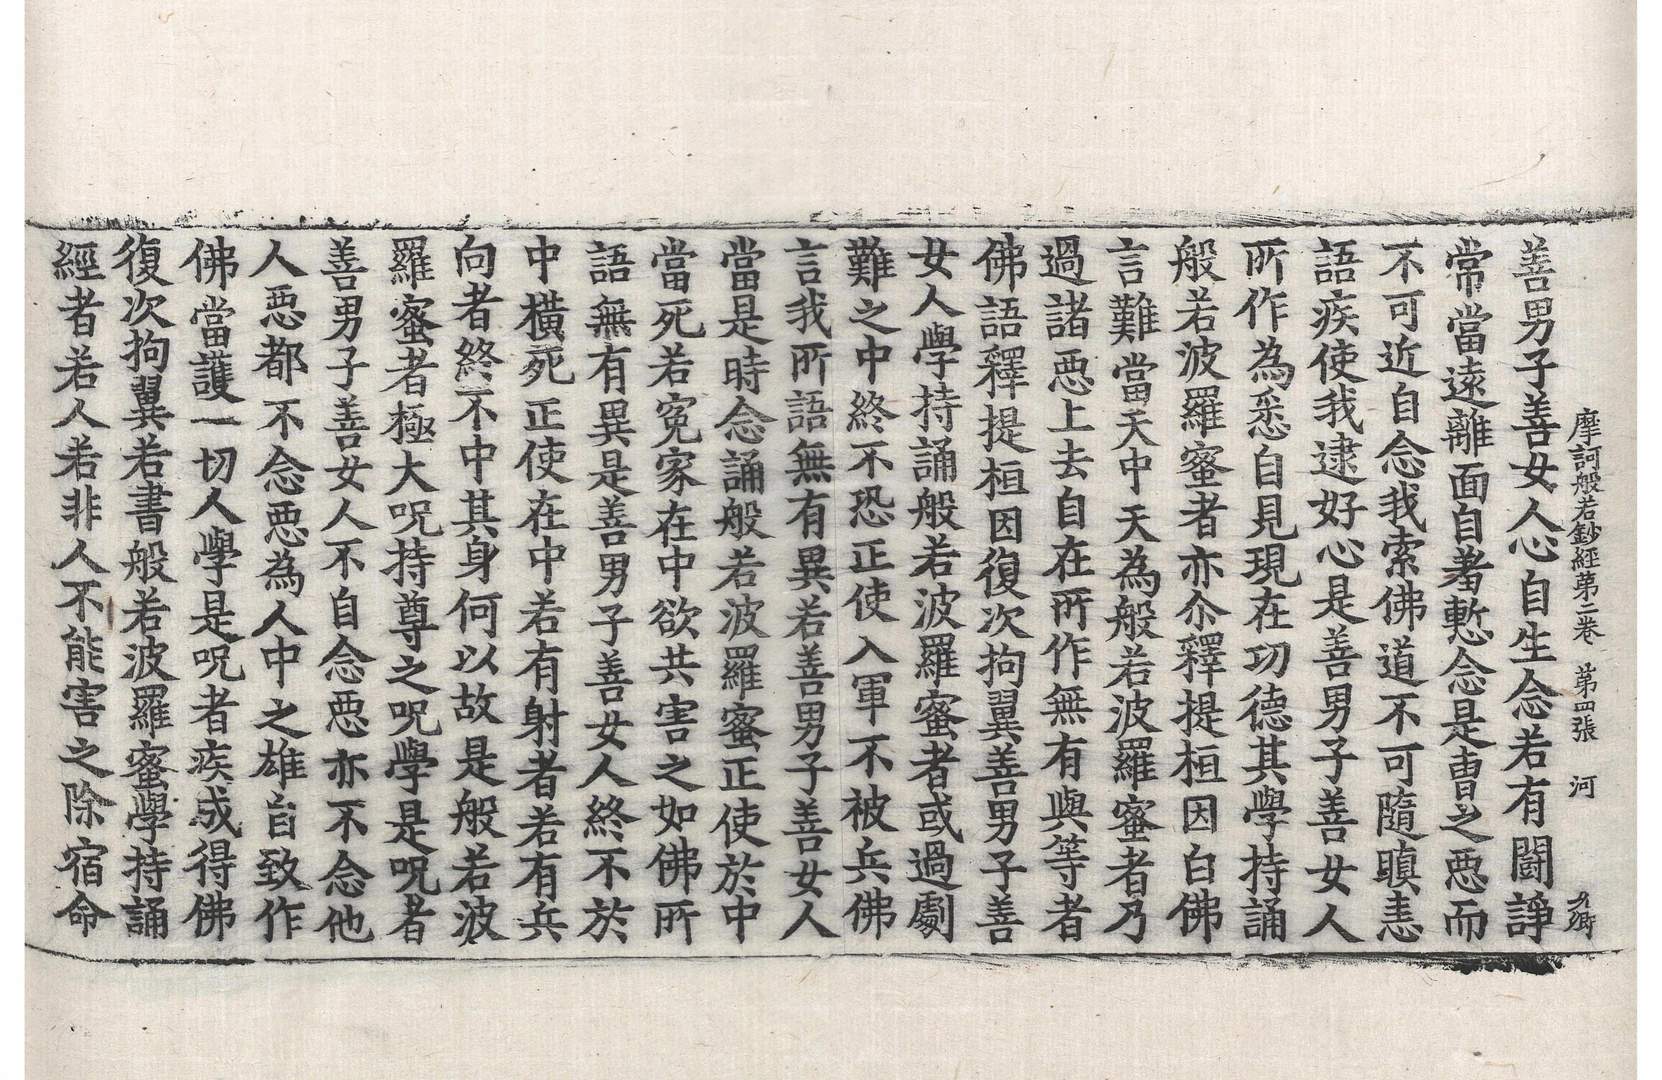 摩訶般若鈔經第二卷 第四張 河
善男子善女人心自生念若有鬪諍
常當遠離面自羞慙念是曹之惡而
不可近自念我索佛道不可隨瞋恚
語疾使我逮好心是善男子善女人
所作為悉自見現在功德其學持誦
般若波羅蜜者亦尒釋提桓因白佛
言難當天中天為般若波羅蜜者乃
過諸惡上去自在所作無有與等者
佛語釋提桓因復次拘翼善男子善
女人學持誦般若波羅蜜者或過劇
難之中終不恐正使入軍不被兵佛
言我所語無有異若善男子善女人
當是時念誦般若波羅蜜正使於中
當死若寃家在中欲共害之如佛所
語無有異是善男子善女人終不於
中橫死正使在中若有射者若有兵
向者終不中其身何以故是般若波
羅蜜者極大呪持尊之呪學是呪者
善男子善女人不自念惡亦不念他
人惡都不念惡為人中之雄自致作
佛當護一切人學是呪者疾成得佛
復次拘翼若書般若波羅蜜學持誦
經者若人若非人不能害之除宿命